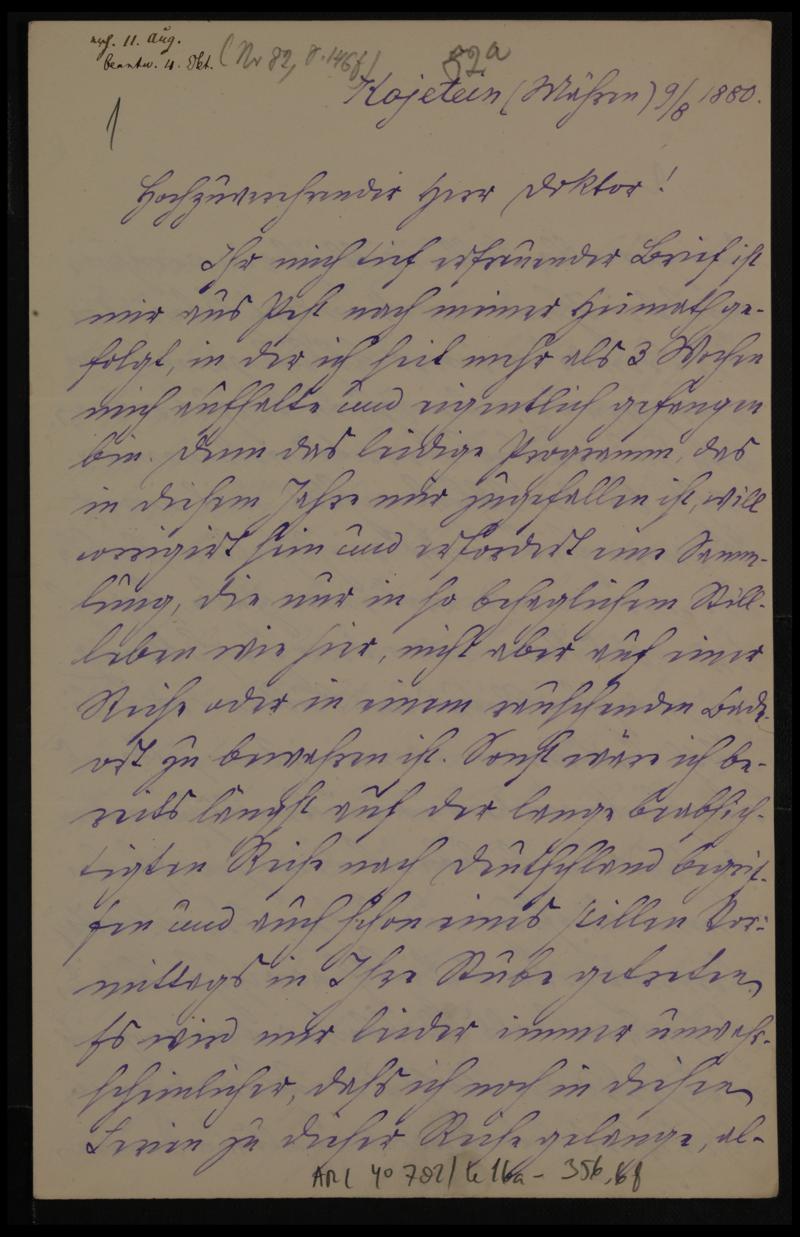 empf. 11. Aug.
beantw. 4. Okt.
(Nr 82, S. 146f)
52a
1
Kojetein (Mähren) 9/8 1880.
Hochzuverehrender Herr Doktor!
Ihr mich tief erfreuender Brief ist
mir aus Pest nach meiner Heimath ge-
folgt, in der ich seit mehr als 3 Wochen
mich aufhalte und eigentlich gefangen
bin. Denn das leidige Programm, das
in diesem Jahre mir zugefallen ist, will
corrigirt sein und erfordert eine Samm-
lung, die nur in so behaglichem Still-
leben wie hier, nicht aber auf einer
Reise oder in einem rauschenden Bade-
ort zu bewahren ist. Sonst wäre ich be-
reits längst auf der lange beabsich-
tigten Reise nach Deutschland begrif-
fen und auch schon eines stillen Vor-
mittags in Ihre Stube getreten.
Es wird mir leider immer unwahr-
scheinlicher, daß ich noch in diesen
Ferien zu dieser Reise gelange, al-